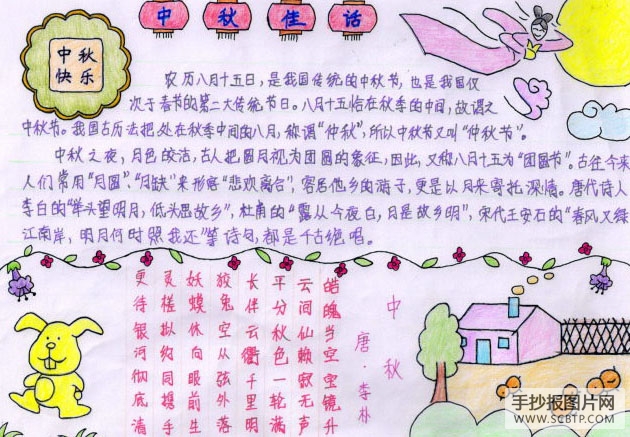 中秋佳话
中秋
快乐
农历八月十五日，是我国传统的中秋节，也是我国仅
次于春节的第二大传统节日。八月十五恰在秋季的中间，故谓之
中秋节。我国古历法把处在秋季中间的八月，称谓“仲秋”，所以中秋节又叫“仲秋节”。
中秋之夜，月色皎洁，古人把圆月视为团圆的象征，因此，又称八月十五为“团圆节”。古往今来
人们常用“月圆”、“月缺”来形容“悲欢离合”，客居他乡的游子，更是以月来寄托深情。唐代诗人
李白的“举头望明月，低头思故乡”，杜甫的“露从今夜白，月是故乡明”，宋代王安石的“春风又绿
江南岸，明月何时照我还”等诗句，都是千古绝唱。
中秋
唐·李朴
皓魄当空宝镜升
云间仙赖寂无声
平分秋色一轮满
长伴云衢千里明
狡兔空从弦外落
妖蟆休向眼前生
灵槎拟约同携手
更待银河彻底清
手抄报图片网
WWW.SCBTP.COM